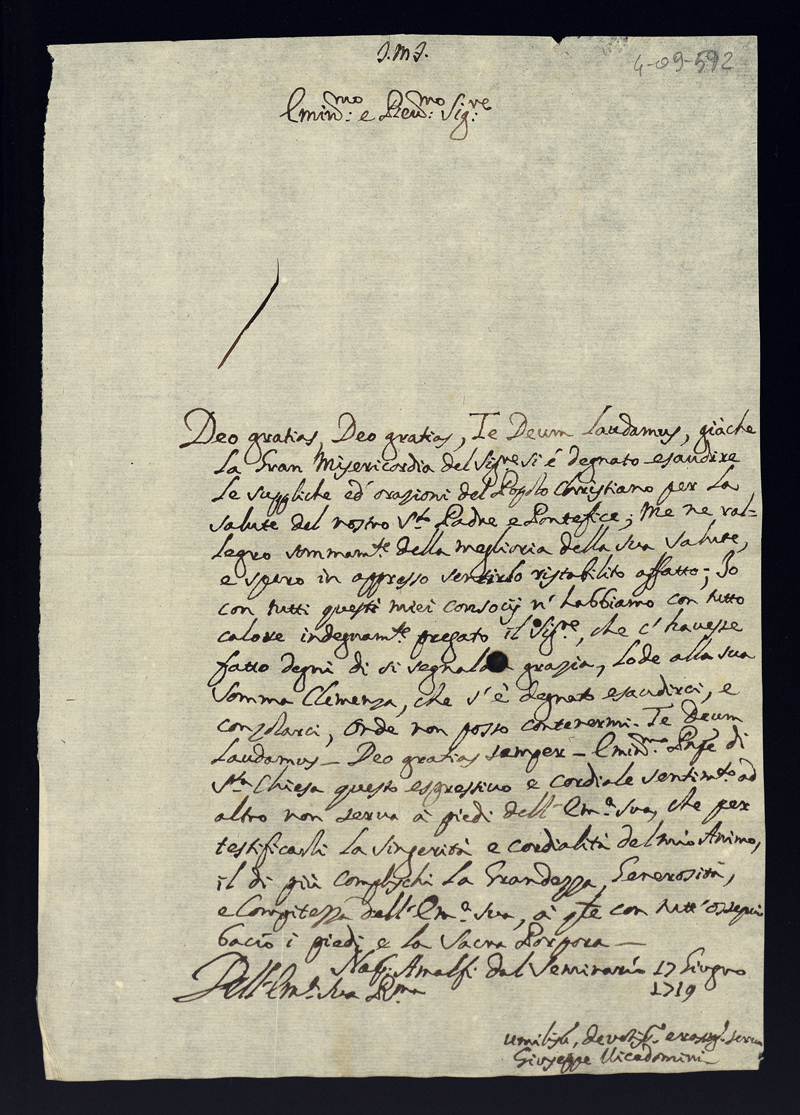 J.M.J.
4-09-592
Emin:mo e Reve:mo Sig:re
Deo gratias, Deo gratias, Te Deum Laudamus, giàche
La Gran Misericordia del Sigre si é degnato esaudire
Le suppliche ed' orazioni del Popolo Christiano per La
salute del nostro Sto Padre e Pontefice; Me ne ral-
legro sommamte della meglioria della sua salute,
e spero in appresso sentirlo ristabilito affatto; Io
con tutti questi miei consocij n' habbiamo con tutto
calore indegnamte pregato il Sigre, che c' havesse
fatto degni di si segnalata grazia, Lode alla sua
somma Clemenza, che s' è degnato esaudirci, e
consolarci, onde non posso contenermi. Te Deum
Laudamus - Deo gratias semper - Emin:mo Pnpe di
Sta Chiesa questo espressivo e cordiale sentimto ad
altro non serva à piedi dell' Ema Sua, che per
testificarli La singerità e cordialità del mio Animo,
il di più complischi La Grandezza, Generosità,
e Compitezza dell' Ema Sua, à cui con tutt' ossequio
bacio i piedi e la Sacra Porpora -
Amalfi dal Seminario 17 Giugno
1719
Dell' Ema Sua Rma
umiliss, devotiss. servo
Giuseppe Vicedomini